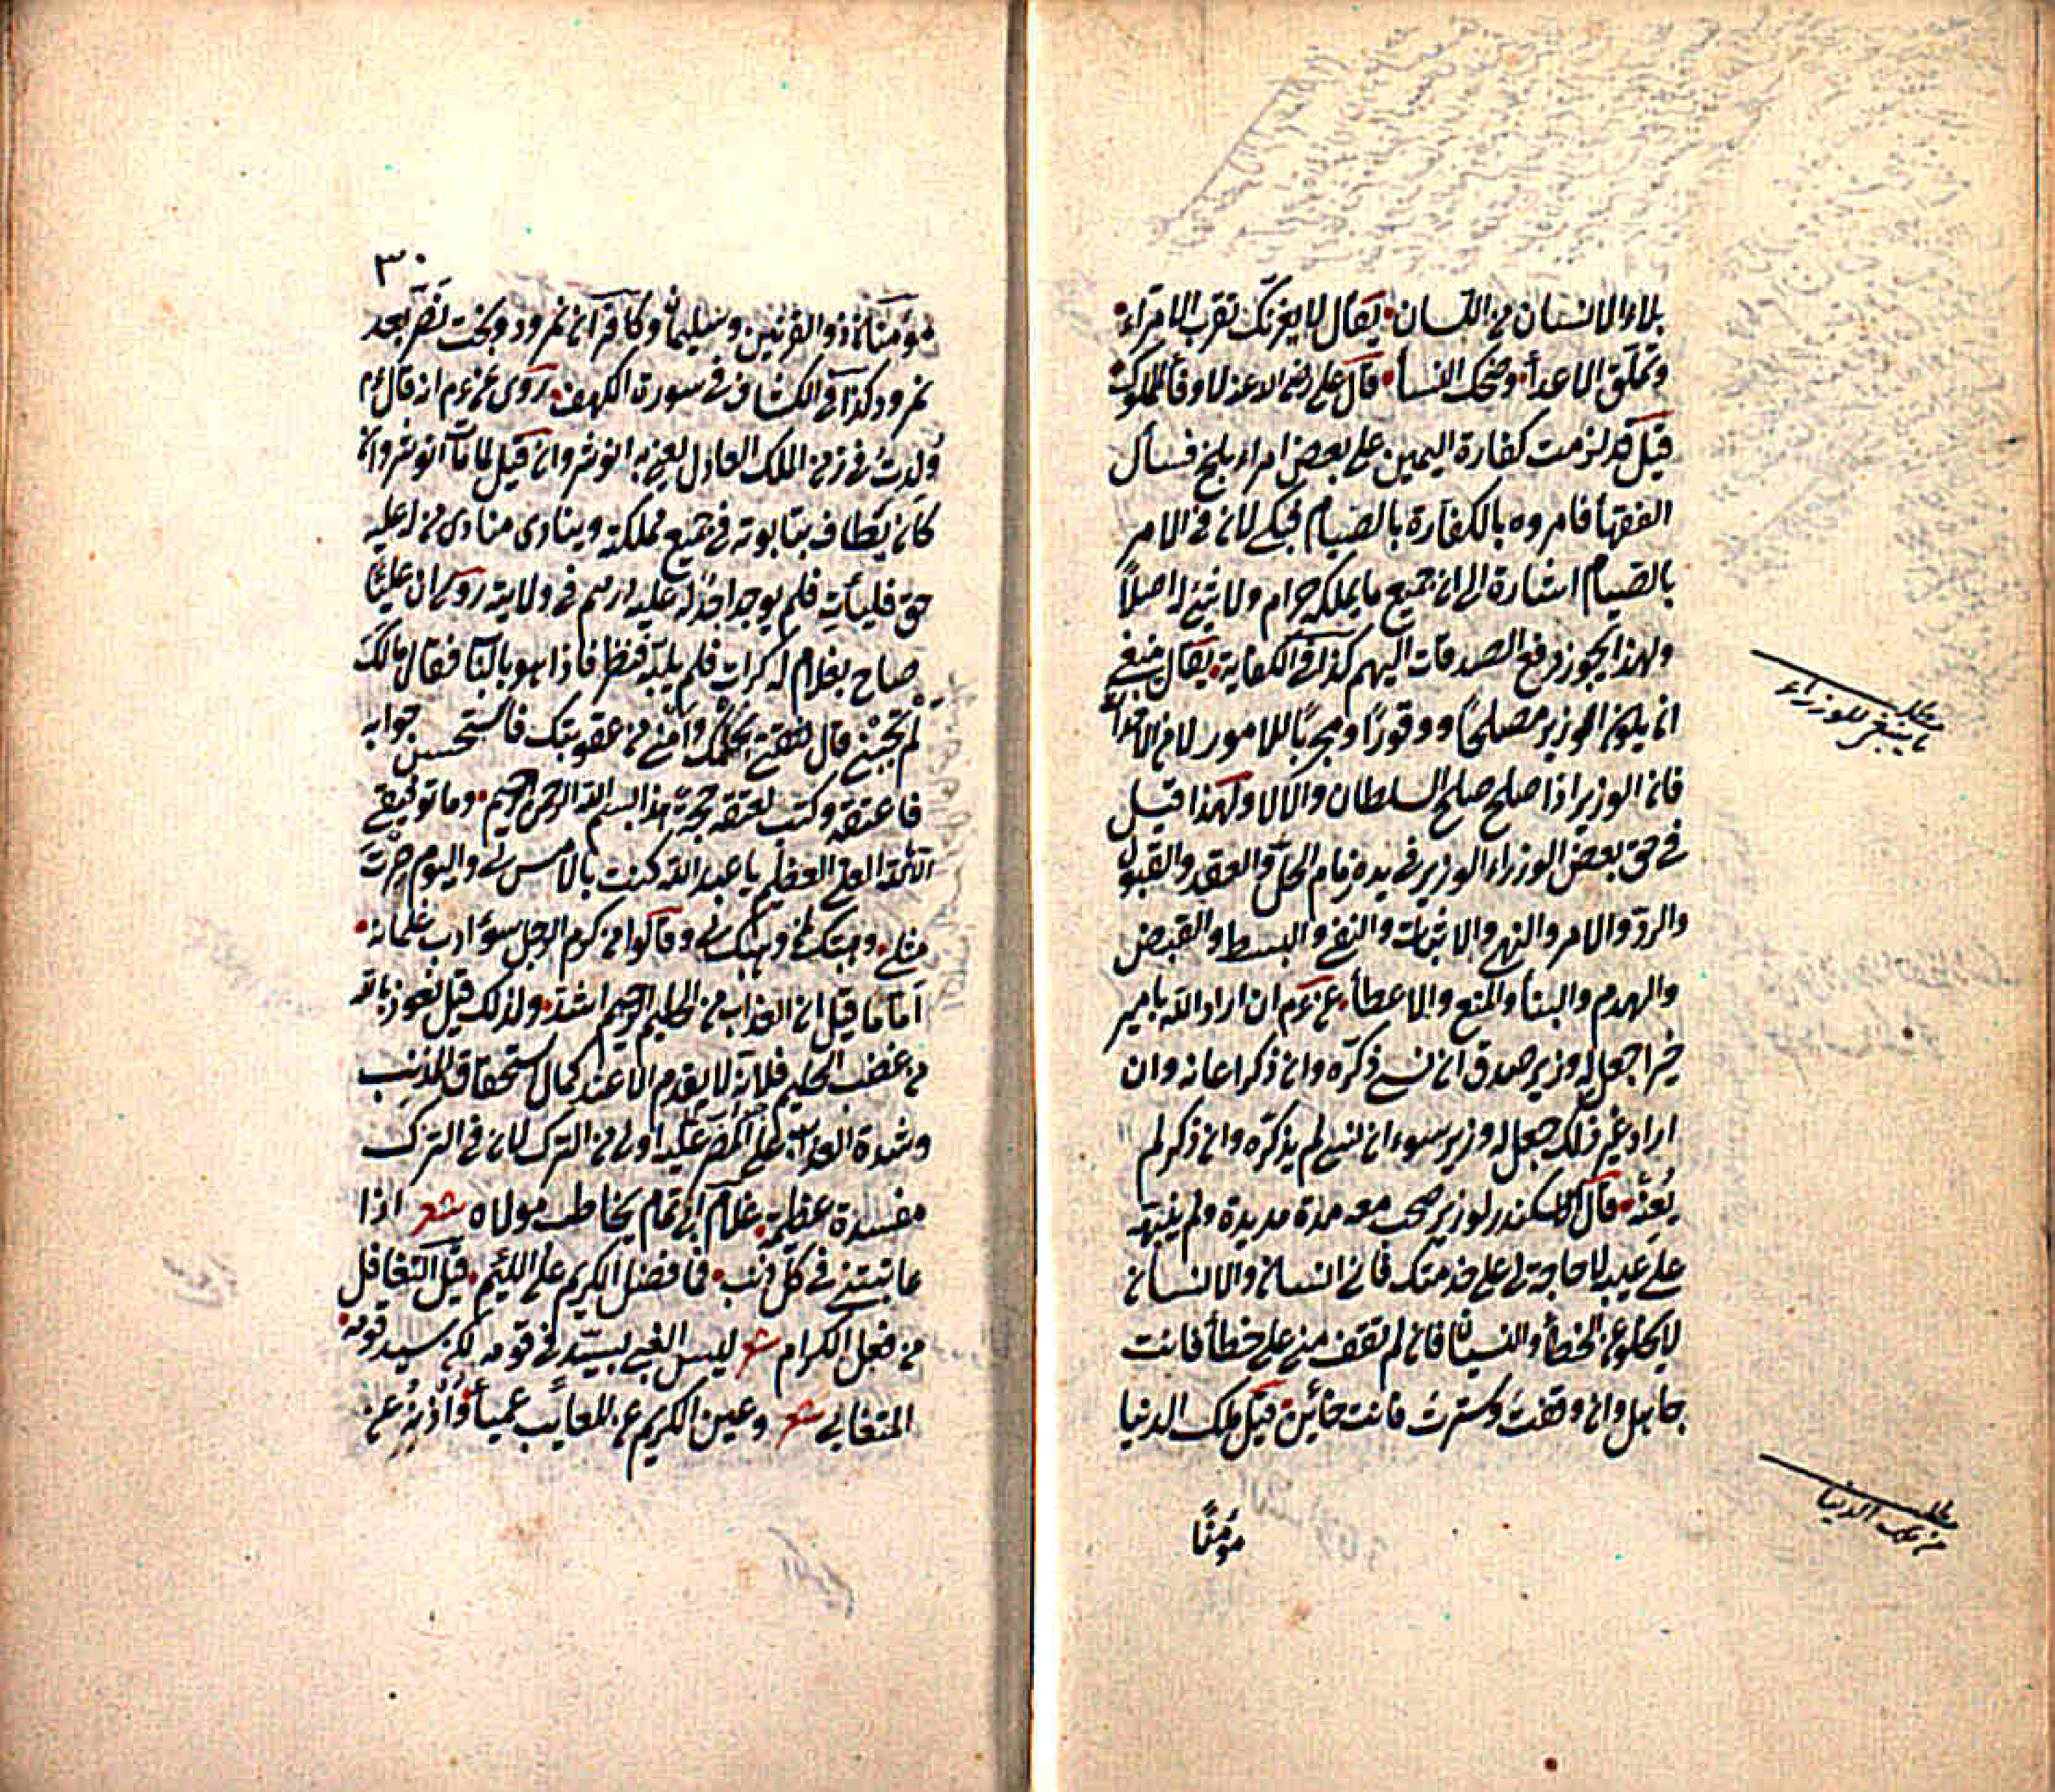 بلاء الانسان من اللسان يقال لا يغرنك تقرب الامراء
وتملق الاعداء وضحك النساء قال علي رضي الله عنه لا وفا للملوك
قيل قد لزمت كفارة اليمين على بعض امراء بلخ فسأل
الفقهأ فامروه بالكفارة بالصيام فبكى لان في الامر
بالصيام اشارة الى ان جميع ما يملكه حرام ولا شئ له اصلاً
ولهذا يجوز دفع الصدقات اليهم كذا في الكفاية يقال ينبغي
ان يكون الوزير مصلحاً ووقوراً ومجرباً للامور لا من الاحداث
فان الوزير اذا صلح صلح السلطان والا لا ولهذا قيل
في حق بعض الوزراء الوزير في يده زمام الحل والعقد والقبول
والرد والامر والنهي والاثبات والنفي والبسط والقبض
والهدم والبنأ والمنع والاعطأ عن عم ان اراد الله بامير
خيرا جعل له وزير صدق ان نسي ذكره وان ذكر اعانه وان
اراد غير ذلك جعل له وزير سوء ان نسي لم يذكره وان ذكر لم
يُعنه قال الاسكندر لوزير صحب معه مدة مديدة ولم ينبهه
على عيب لا حاجة لي على خدمتك فاني انسان والانسان
لا يخلو عن الخطأ والنسيان فان لم تقف مني على خطأ فانت
جاهل وان وقفت وسترت فانت خائن قيل ملك الدنيا
مؤمنًا
مطلب
ما ينبغي للوزراء
مطلب
من ملك الدنيا
٣٠
مؤمنان ذو القرنين وسليمان وكافران نمرود وبخت نصر بعد
نمرود كذا في الكشاف في سورة الكهف روى عن عم انه قال عم
وُلدتُ في زمن الملك العادل يعني به انوشروان قيل لما مات انوشروان
كان يطاف بتابوته في جميع مملكته وينادى منادى من له عليه
حق فليأت فلم يوجد احد له عليه درهم في ولايته روى ان عليًا
صاح بغلام له كرات فلم يلبه فنظر فاذا هو بالباب فقال ما لك
لم تجبني قال لثقتي بحلمك وامني من عقوبتك فاستحسن جوابه
فاعتقه وكتب لعتقه حجة هذا بسم الله الرحمن الرحيم وما توفيقي
الا بالله العلي العظيم يا عبد الله كنت بالامس لي واليوم صرت
مثلي وهبتك لمن وهبك لي وقالوا من كرم الرجل سوء ادب غلمانه
اما ما قيل ان العذاب من الحليم الرحيم اشد ولذلك قيل نعوذ بالله
من غضب الحليم فلانه لا يقدم الا عند كمال استحقاق المذنب
وشدة العذاب على المصر عليه اولى من الترك لان في الترك
مفسدة عظيمة غلام ابي تمام يخاطب مولاه شعر اذا
عاتبتني في كل ذنب فما فضل الكريم على اللئيم قيل التغافل
من فعل الكرام شعر ليس الغبي بسيد في قومه لكن سيد قومه
المتغابي شعر وعين الكريم عن المعايب عمياً وأذنه عن